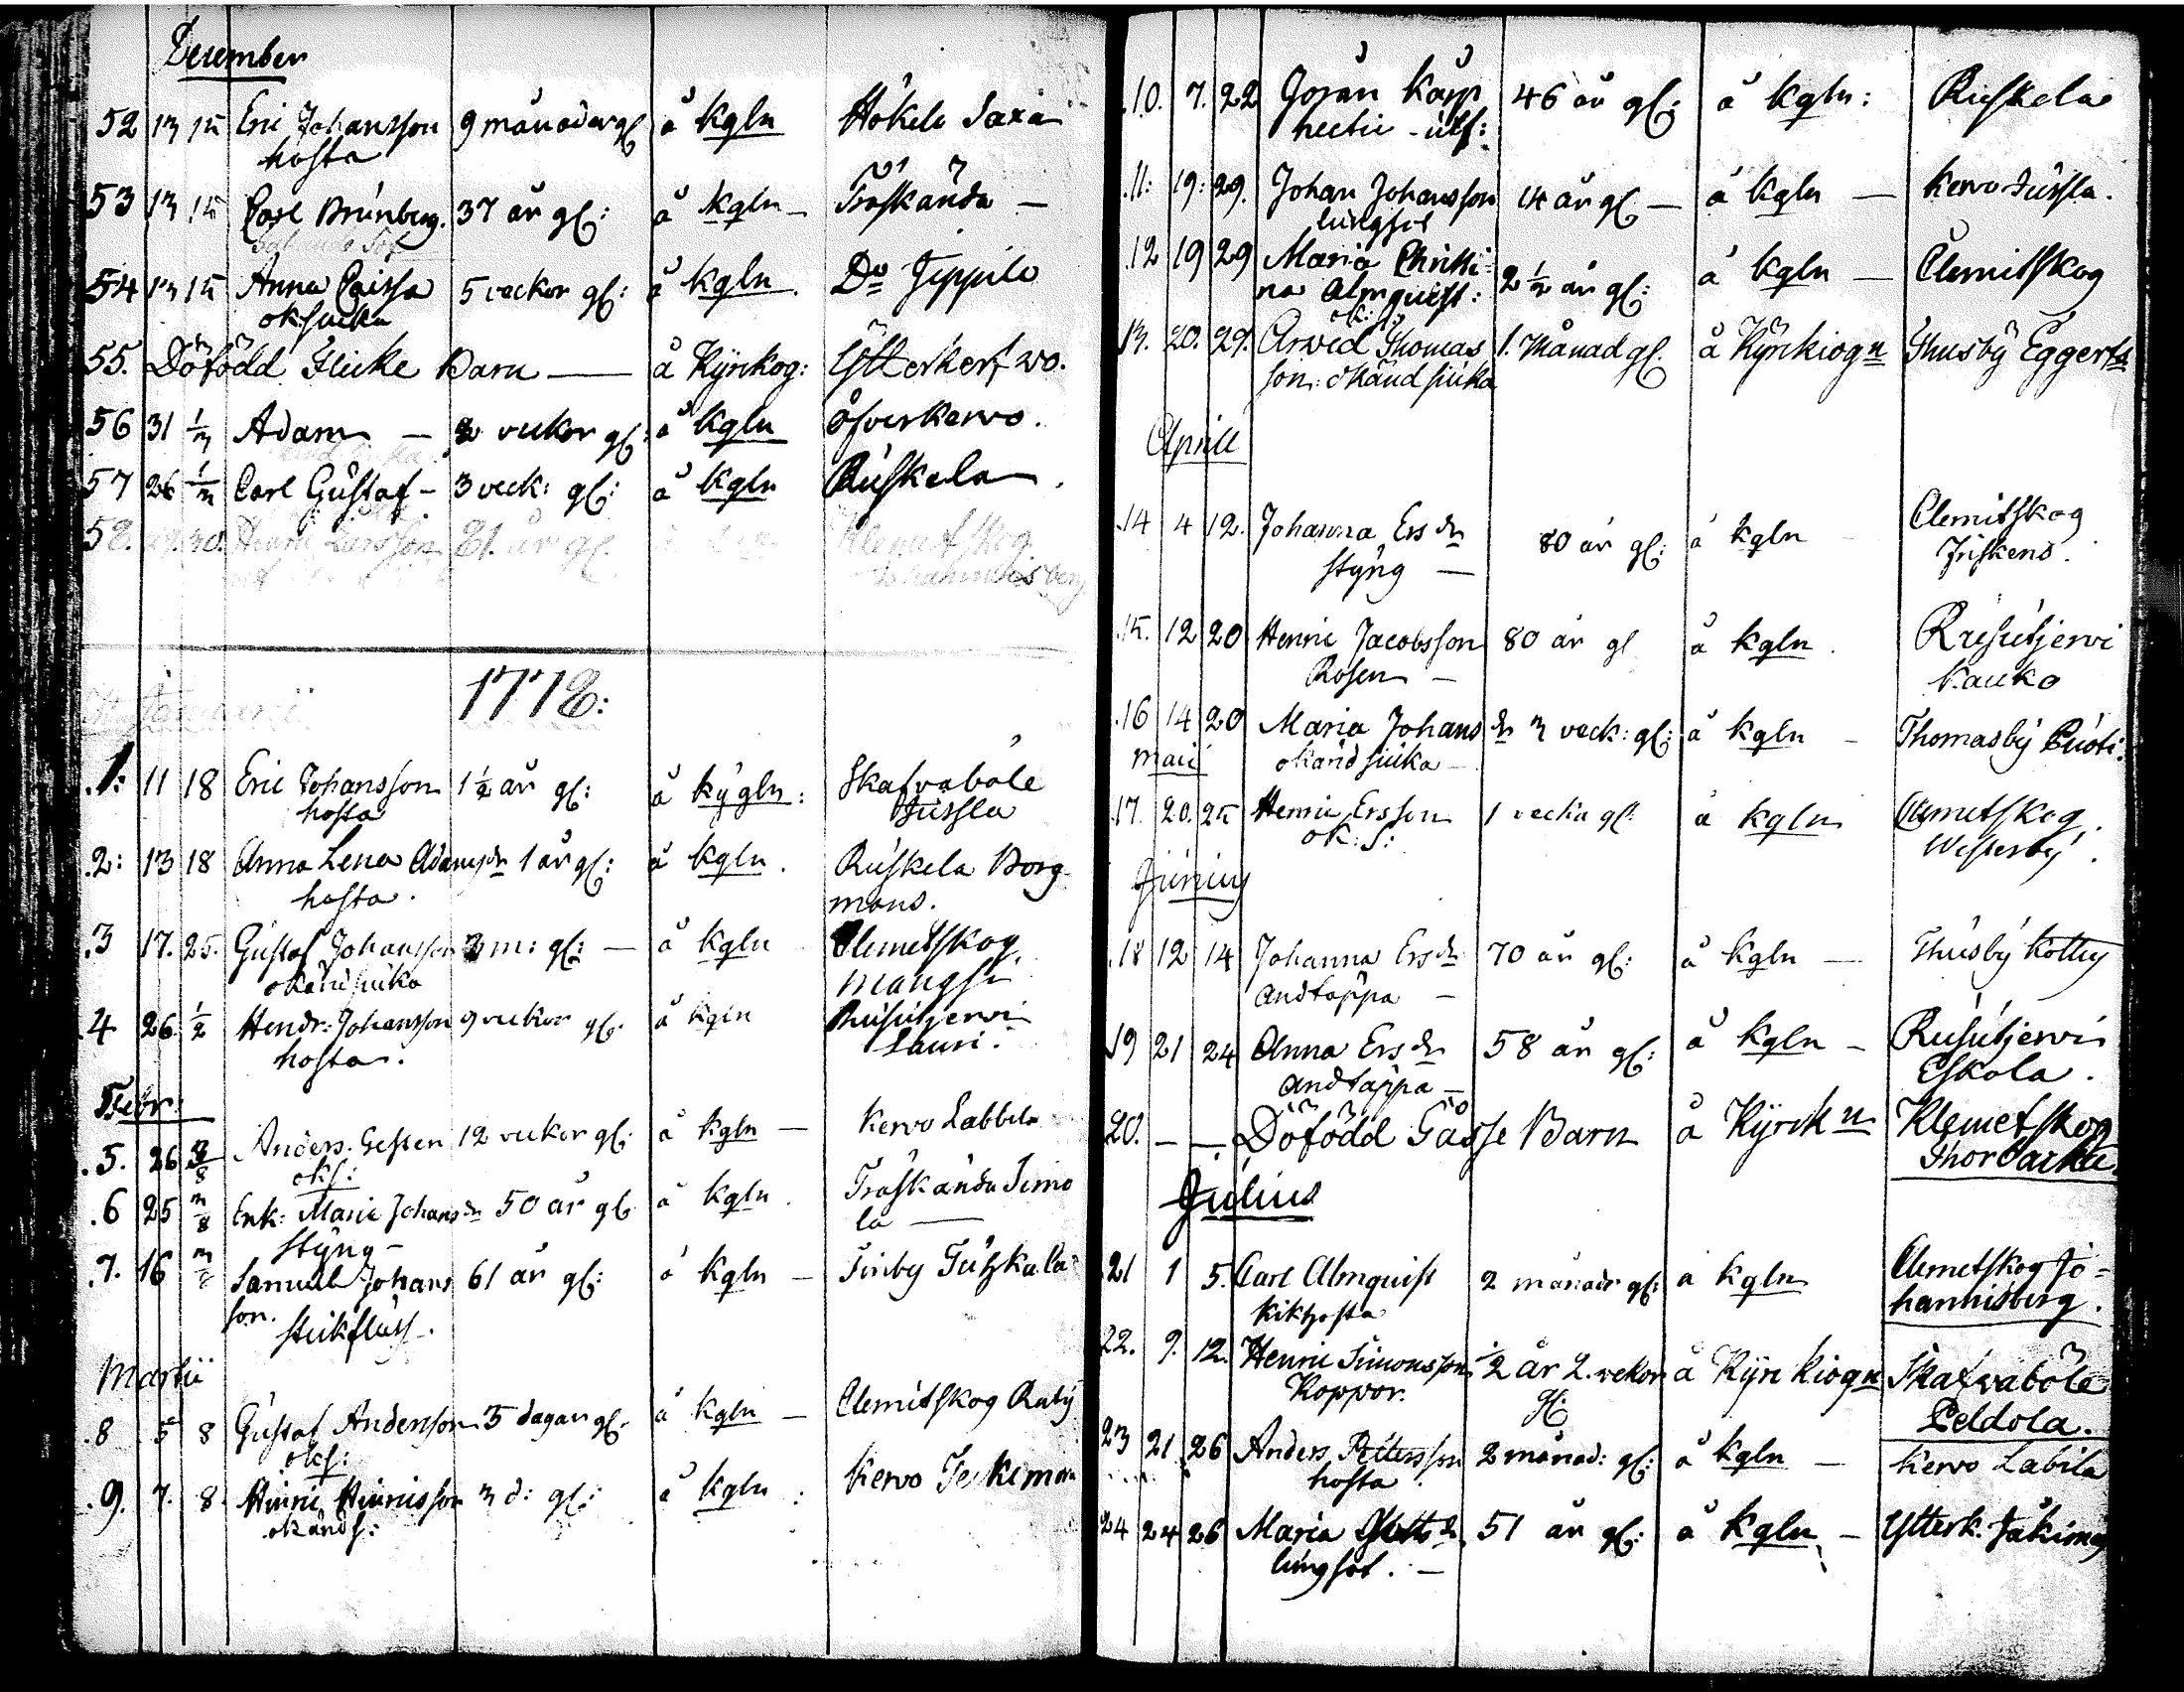 December
52 13 15 Eric Johansson 9 månader gl å kgln Hökele Saxa
hosta
53 13 15 Carl Brunberg. 37 år gl: å kgln – Träskända –
54 13 15 Anna Caissa 5 veckor gl: å kgln Do Jeppila
ok siuka
55. Dödfödd Flicke Barn — å Kyrkog: Ytterkerfwo.
56 31 1/3 Adam – 2 veckor gl: å kgln öfverkervo.
57 26 1/2 Carl Gustaf – 3 veck: gl: å kgln Ruskela
58. 30. Larsson 81. år gl. Klemetskog.
Johannesberg
1778:
Januarii
.1: 11 18 Eric Johansson 1 1/2 år gl: å kÿgln: Skafvaböle
hosta Jussla
.2: 13 18 Anna Lena Adamsdr 1 år gl: å kgln. Ruskela Borg
hosta. mans.
.3 17. 25. Gustaf Johansson 3 m: gl: — å kgln Clemetskog
okänd siuka Mangsu
.4 26. 1/2 Hendr: Johansson 9 veckor gl. å kgln Rusutjervi
hosta. Lauri.
Febr:
.5. 26 /8 Anders. 12 veckor gl: å kgln — Kervo Labbila
oks:
.6 25 /8 Enk: Maria Johansdr 50 år gl. å kgln. Träskända Simo
styng – la —
.7. 16 Samuel Johans 61 år gl: å kgln –
son.
stickfluss.
Martii
.8 5 8 Gustaf Andersson 5 dagar gl. å kgln – Clemetskog Raty
oks:
.9. 7. 8. Hinric Hinricsson 3 d: gl: å kgln: Kervo
okänds:
.10. 7. 22 Göran Karp 46 år gl: å kgln: Ruskela
hectic –
.11: 19: 29. Johan Johansson 14 år gl — å kgln — Kervo Jussla.
lungsot
.12 19 29 Maria Christi= 2 1/2 år gl: å kgln — Clemetskog
na Almquist:
ok: s:
13. 20. 29. Arved Thomas 1. Månad gl. å Kÿrkiogn Thusbÿ Eggerts
son: okänd siuka
April
.14 4 12. Johanna Ersdr 80 år gl: å kgln – Clemetskog
styng — Friskens.
.15. 12 20 Henric Jacobsson 80 år gl å kgln. Rusutjervi
Rosen – Kauko
.16 14 20 Maria Johansdr 3 veck: gl: å kgln – Thomasbÿ
maii okänd siuka –
.17. 20. 25 Henric Ersson 1 vecka gl: å kgln Clemetskog.
ok: s: Westerbÿ.
Junius
.18 12 14 Johanna Ersdr 70 år gl: å kgln — Thusbÿ
andtäppa –
.19 21 24 Anna Ersdr 58 år gl: å kgln – Rusutjervi
andtäppa – Eskola.
20. — — Dödfödd Gåsse Barn å Kÿrckn Klemetskog
Julius
21 1 5. Carl Almquist 2 månadr gl: å kgln Clemetskog Jo=
kikhosta hannisberg.
22. 9. 12. Henric Simonsson 1/2 år 2. vekor å Kÿrkiogn Skafvaböle
Koppor. gl: Peldola.
23 21 26 Anders Pettersson 2 månad: gl: å kgln – Kervo Labila
hosta
24 24 26 Maria 51 år gl: å kgln – Ytterk.
lungsot. –